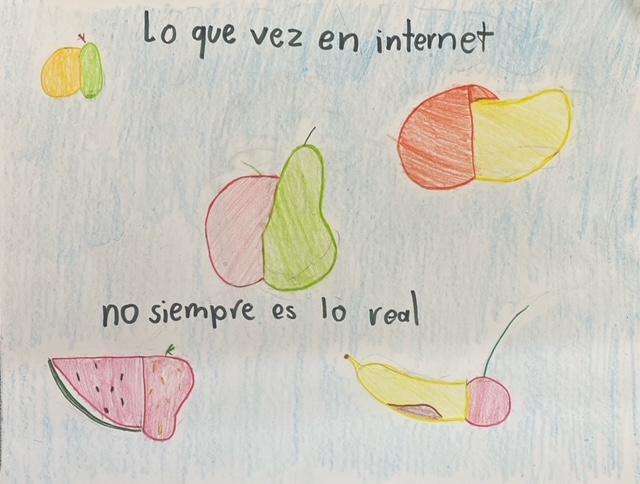 Lo que vez en internet
no siempre es lo real